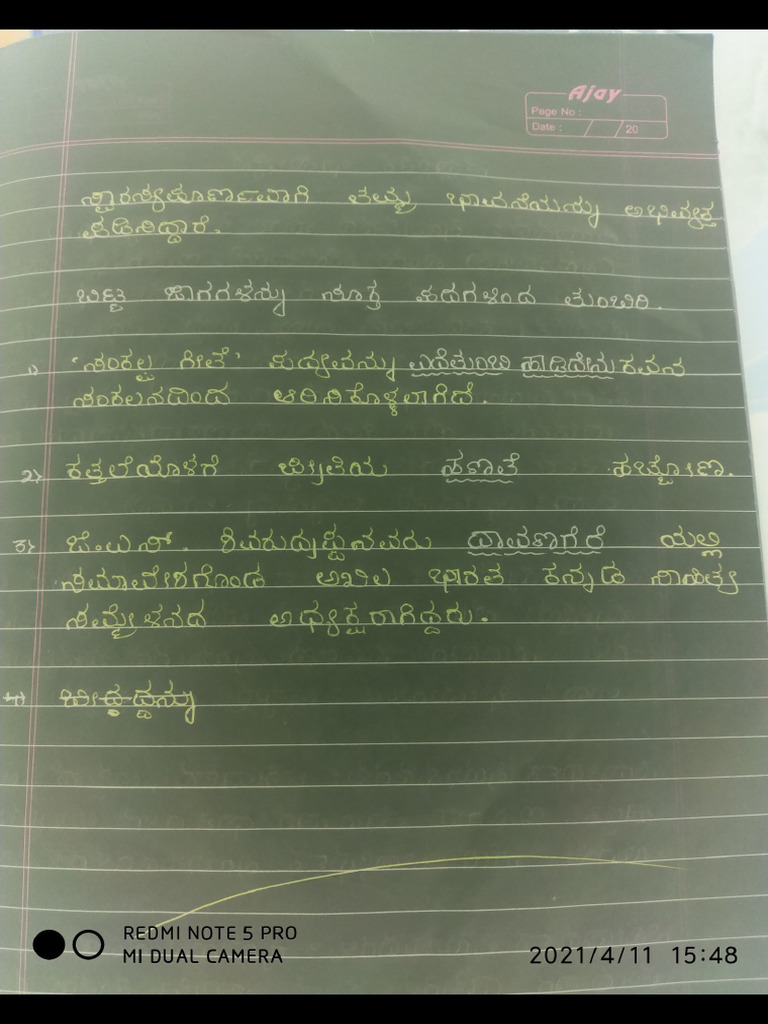 Ajay
Page No :
Date : / / 20
ಸ್ವಾರಸ್ಯಪೂರ್ಣವಾಗಿ ತಮ್ಮ ಭಾವನೆಯನ್ನು ಅಭಿವ್ಯಕ್ತ
ಪಡಿಸಿದ್ದಾರೆ.
ಬಿಟ್ಟ ಜಾಗಗಳನ್ನು ಸೂಕ್ತ ಪದಗಳಿಂದ ತುಂಬಿರಿ.
1) 'ಸಂಕಲ್ಪ ಗೀತೆ' ಪದ್ಯವನ್ನು ಎದೆತುಂಬಿ ಹಾಡಿದೆನು ಕವನ
ಸಂಕಲನದಿಂದ ಆರಿಸಿಕೊಳ್ಳಲಾಗಿದೆ.
2) ಕತ್ತಲೆಯೊಳಗೆ ಪ್ರೀತಿಯ ಹಣತೆ ಹಚ್ಚೋಣ.
3) ಜಿ.ಎಸ್. ಶಿವರುದ್ರಪ್ಪನವರು ದಾವಣಗೆರೆ ಯಲ್ಲಿ
ಸಮಾವೇಶಗೊಂಡ ಅಖಿಲ ಭಾರತ ಕನ್ನಡ ಸಾಹಿತ್ಯ
ಸಮ್ಮೇಳನದ ಅಧ್ಯಕ್ಷರಾಗಿದ್ದರು.
4)
REDMI NOTE 5 PRO
MI DUAL CAMERA
2021/4/11 15:48